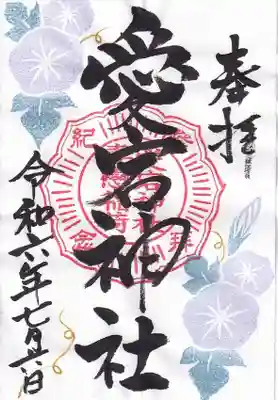 奉拝
愛宕神社
令和六年七月 日
参拝紀念